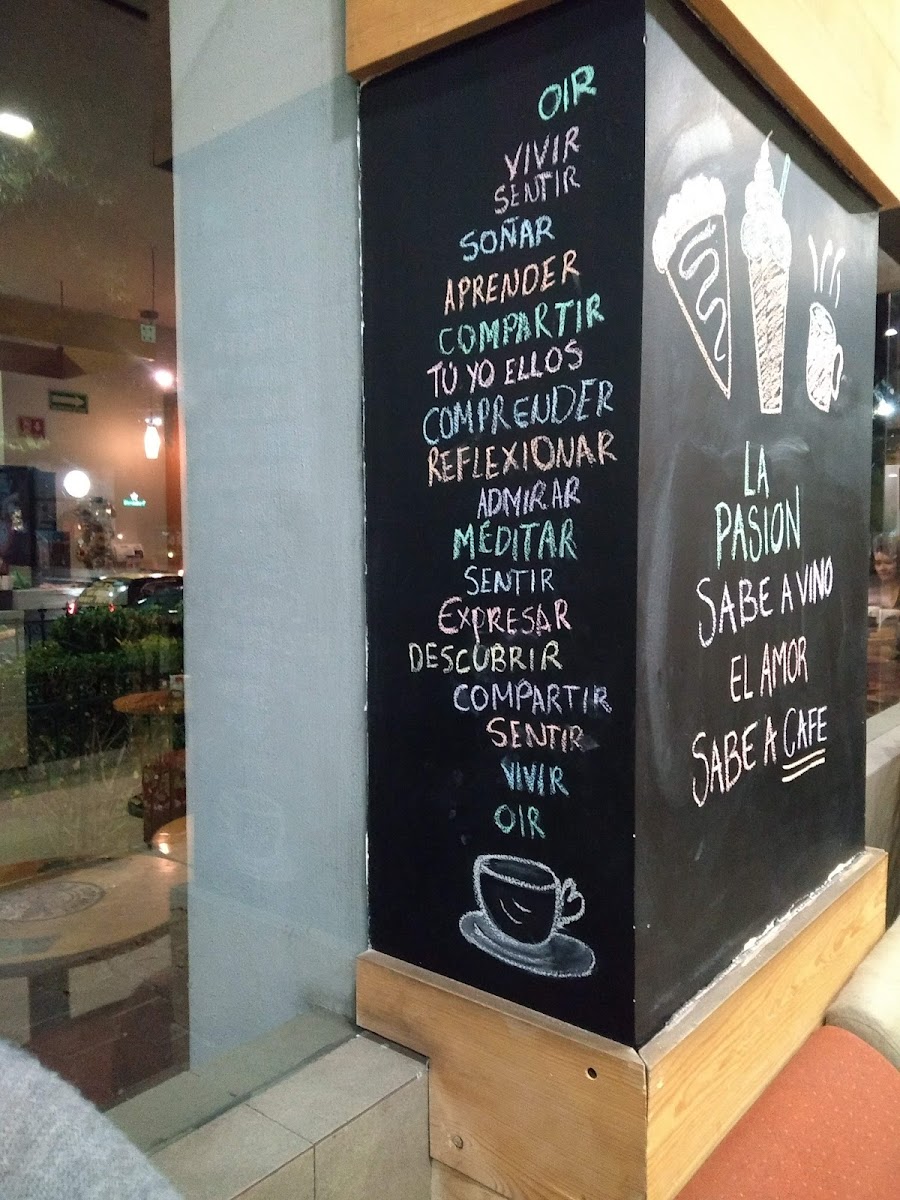 OIR
VIVIR
SENTIR
SOÑAR
APRENDER
COMPARTIR
TÚ YO ELLOS
COMPRENDER
REFLEXIONAR
ADMIRAR
MEDITAR
SENTIR
EXPRESAR
DESCUBRIR
COMPARTIR
SENTIR
VIVIR
OIR
LA
PASION
SABE A VINO
EL AMOR
SABE A CAFE